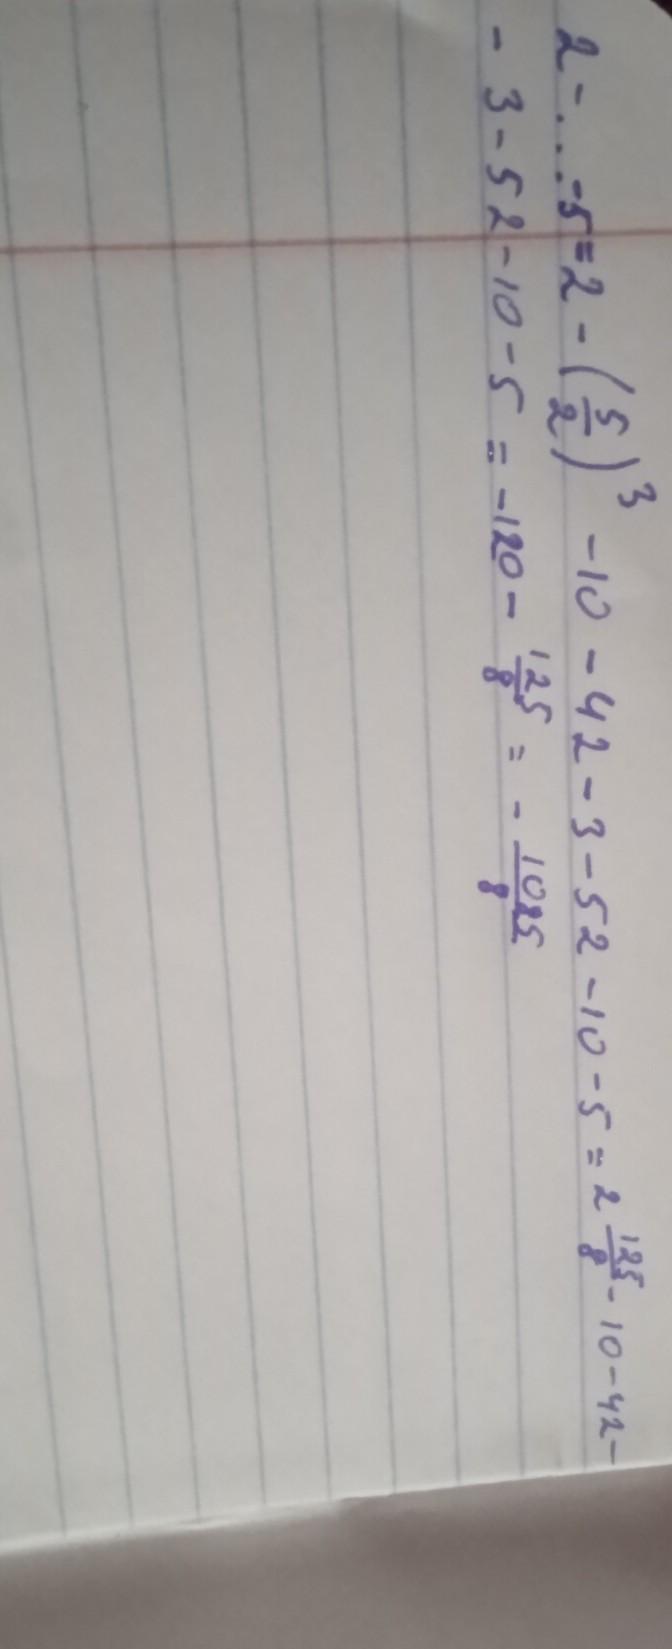 2-...-5=2-(5/2)³ -10-42-3-52-10-5=2 125/8-10-42-
-3-52-10-5=-120-125/8=-1085/8